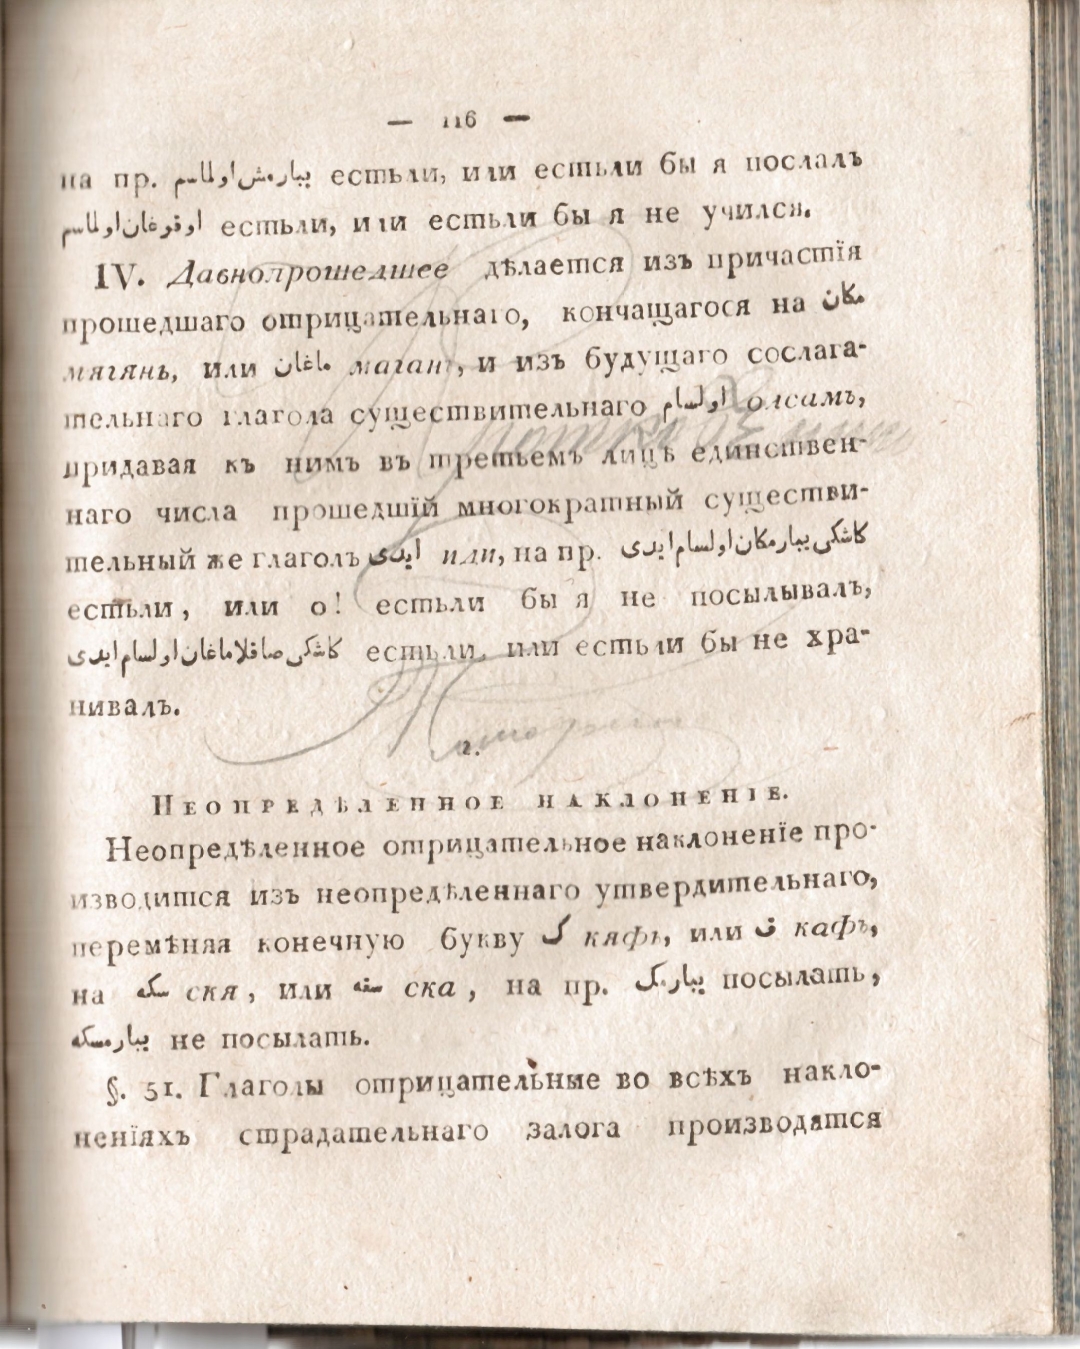 — 116 —
на пр. يبارمش اولماسم естьли, или естьли бы я послалъ
اوقرغان اولماسم естьли, или естьли бы я не учился.
IV. Давнопрошедшее дѣлается изъ причастїя
прошедшаго отрицательнаго, кончащагося на مكان
мягянь, или ماغان маганъ, и изъ будущаго сослага-
тельнаго глагола существительнаго اولسام олсамъ,
придавая къ нимъ въ третьемъ лицѣ единствен-
наго числа прошедшїй многократный существи-
тельный же глаголъ ايدى или, на пр. كاشكى يبارمكان اولسام ايدى
естьли, или о! естьли бы я не посылывалъ,
كاشكى صاقلاماغان اولسام ايدى естьли, или естьли бы не хра-
нивалъ.
2.
Неопредѣленное наклоненїе.
Неопредѣленное отрицательное наклоненїе про-
изводится изъ неопредѣленнаго утвердительнаго,
перемѣняя конечную букву ك кяфъ, или ق кафъ,
на سكه скя, или سقه ска, на пр. يبارمك посылать,
يبارمسكه не посылать.
§. 51. Глаголы отрицательные во всѣхъ накло-
ненїяхъ страдательнаго залога производятся